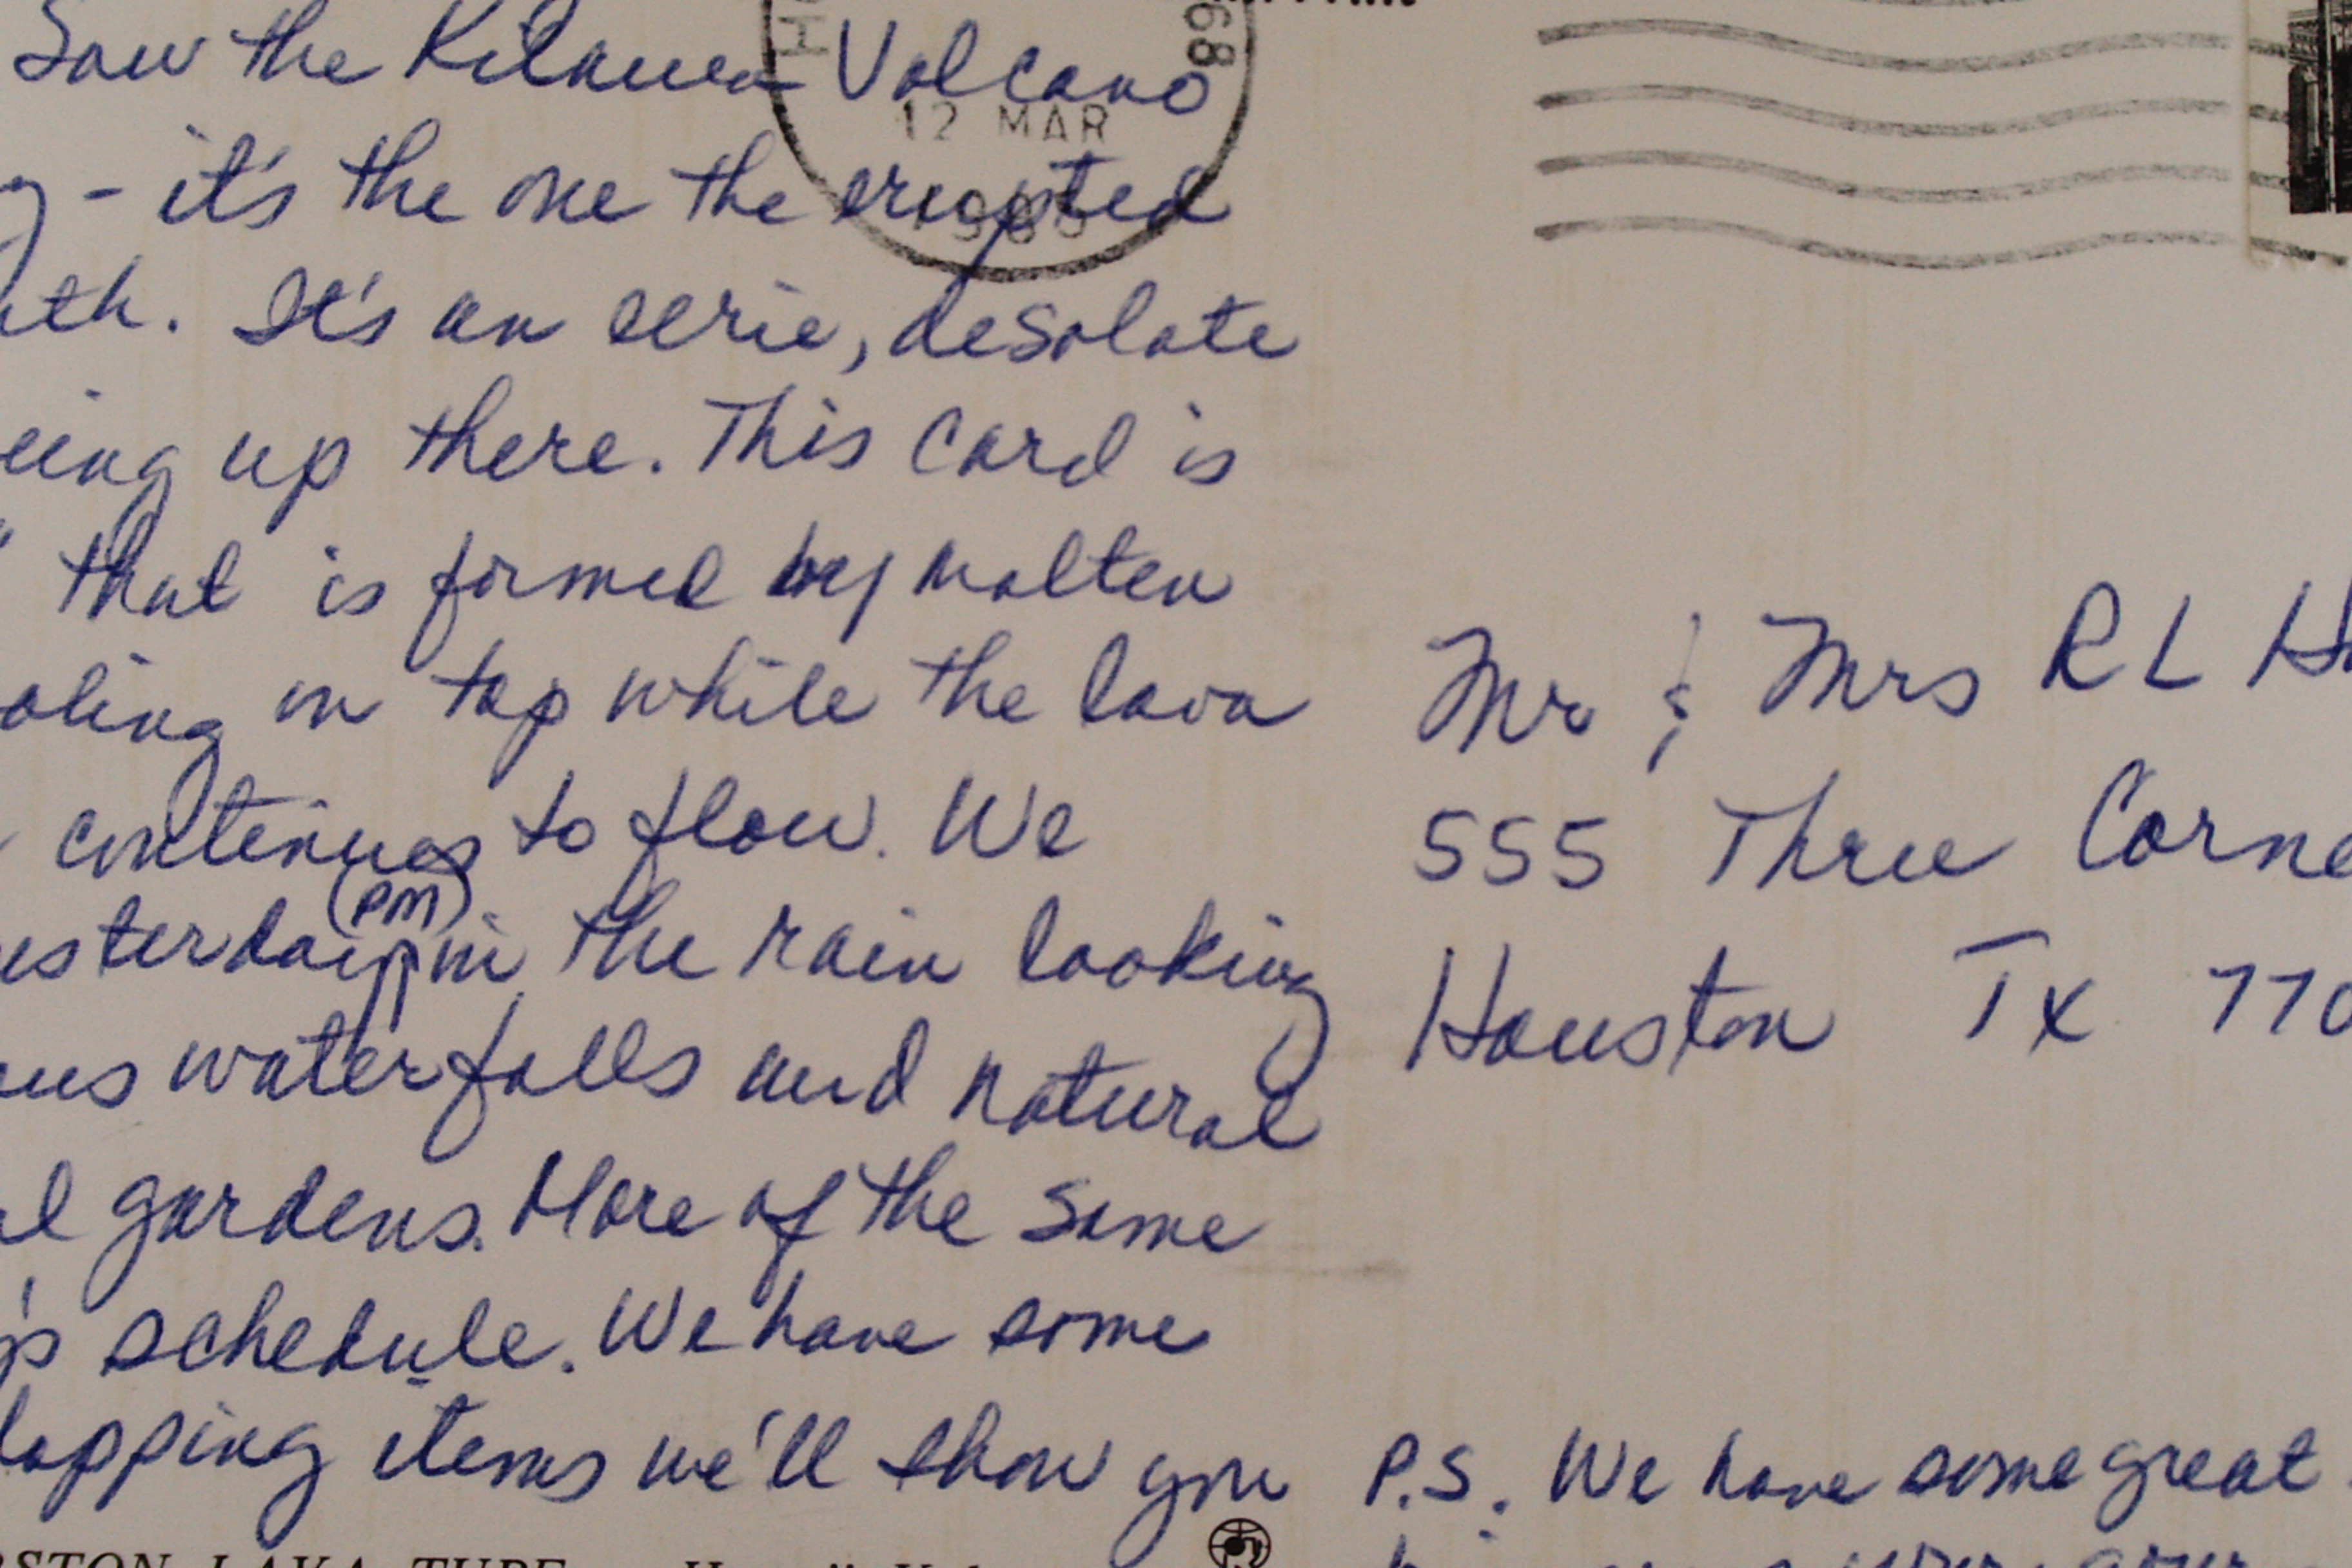 Saw the Kilauea Volcano
- it's the one the erupted
. It's an eerie, desolate
up there. This card is
" that is formed by molten
on top while the lava
continues to flow. We
(PM)
in the rain looking
waterfalls and natural
gardens. More of the same
schedule. We have some
items we'll show you
968
12 MAR
Mr & Mrs R L
555 Three
Houston Tx
P.S. We have some great
LAVA TUBE